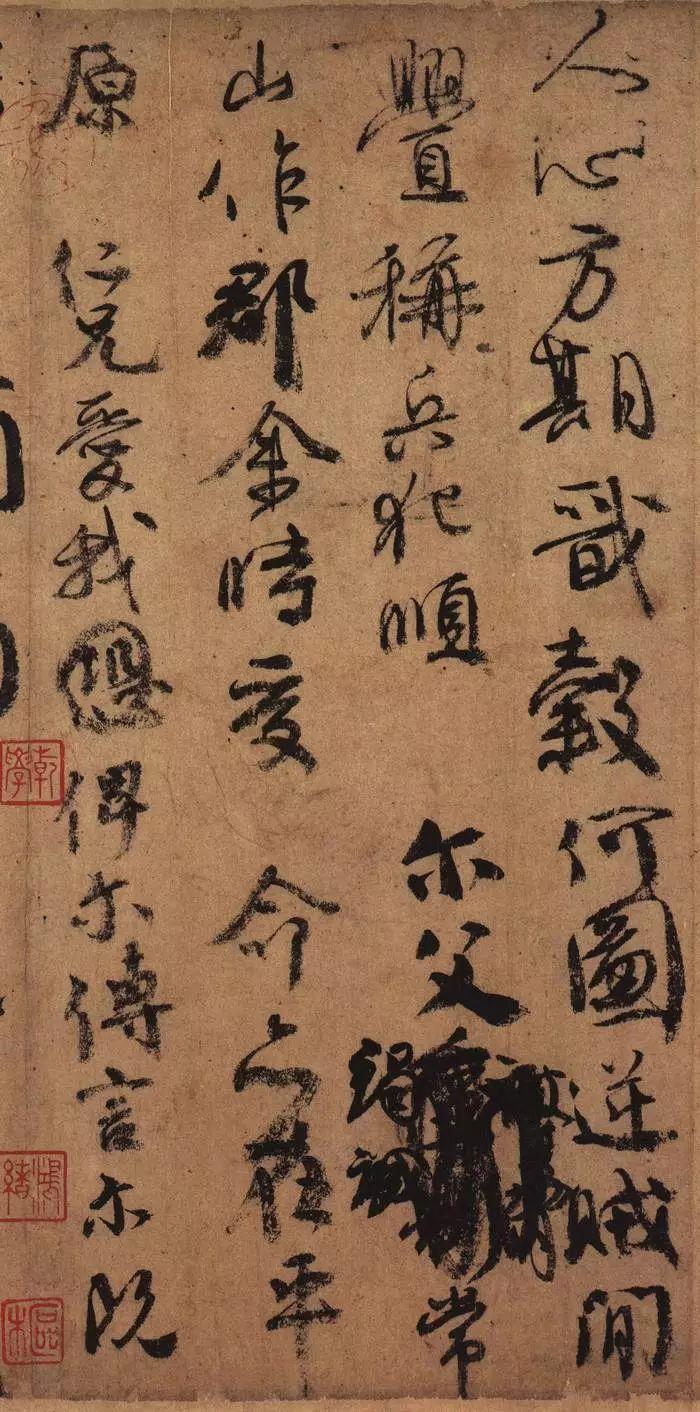 人心方期戩穀何圖逆賊間
釁稱兵犯順 尓父竭誠常
山作郡余時受 命亦在平
原 仁兄愛我恐俾尓傳言尓既
乾學